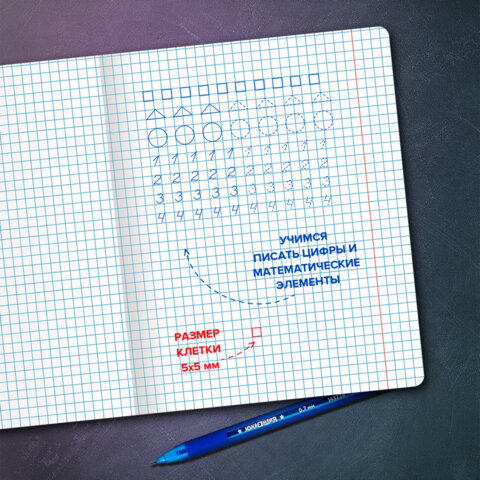 1 1 1 1 1 1 1 1 1 1
2 2 2 2 2 2 2 2 2 2
3 3 3 3 3 3 3 3 3 3
4 4 4 4 4 4 4 4 4 4
УЧИМСЯ
ПИСАТЬ ЦИФРЫ И
МАТЕМАТИЧЕСКИЕ
ЭЛЕМЕНТЫ
РАЗМЕР
КЛЕТКИ
5х5 мм
ЮНЛАНДИЯ 0,7 мм